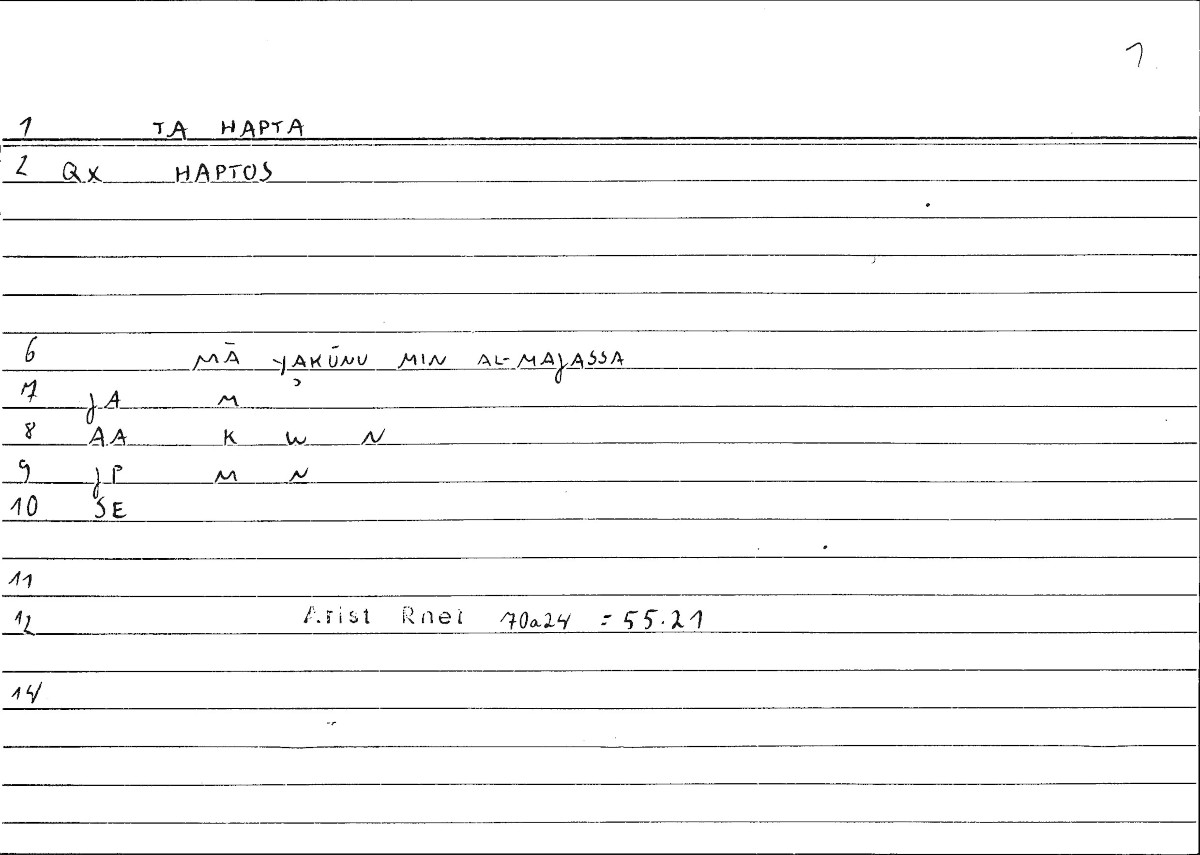 1
1 TA HAPTA
2 QX HAPTOS
6 MĀ YAKŪNU MIN AL-MAJASSA
7 JA M
8 AA K W N
9 JP M N
10 SE
11
12 Arist Rhet 70a24 = 55.21
14